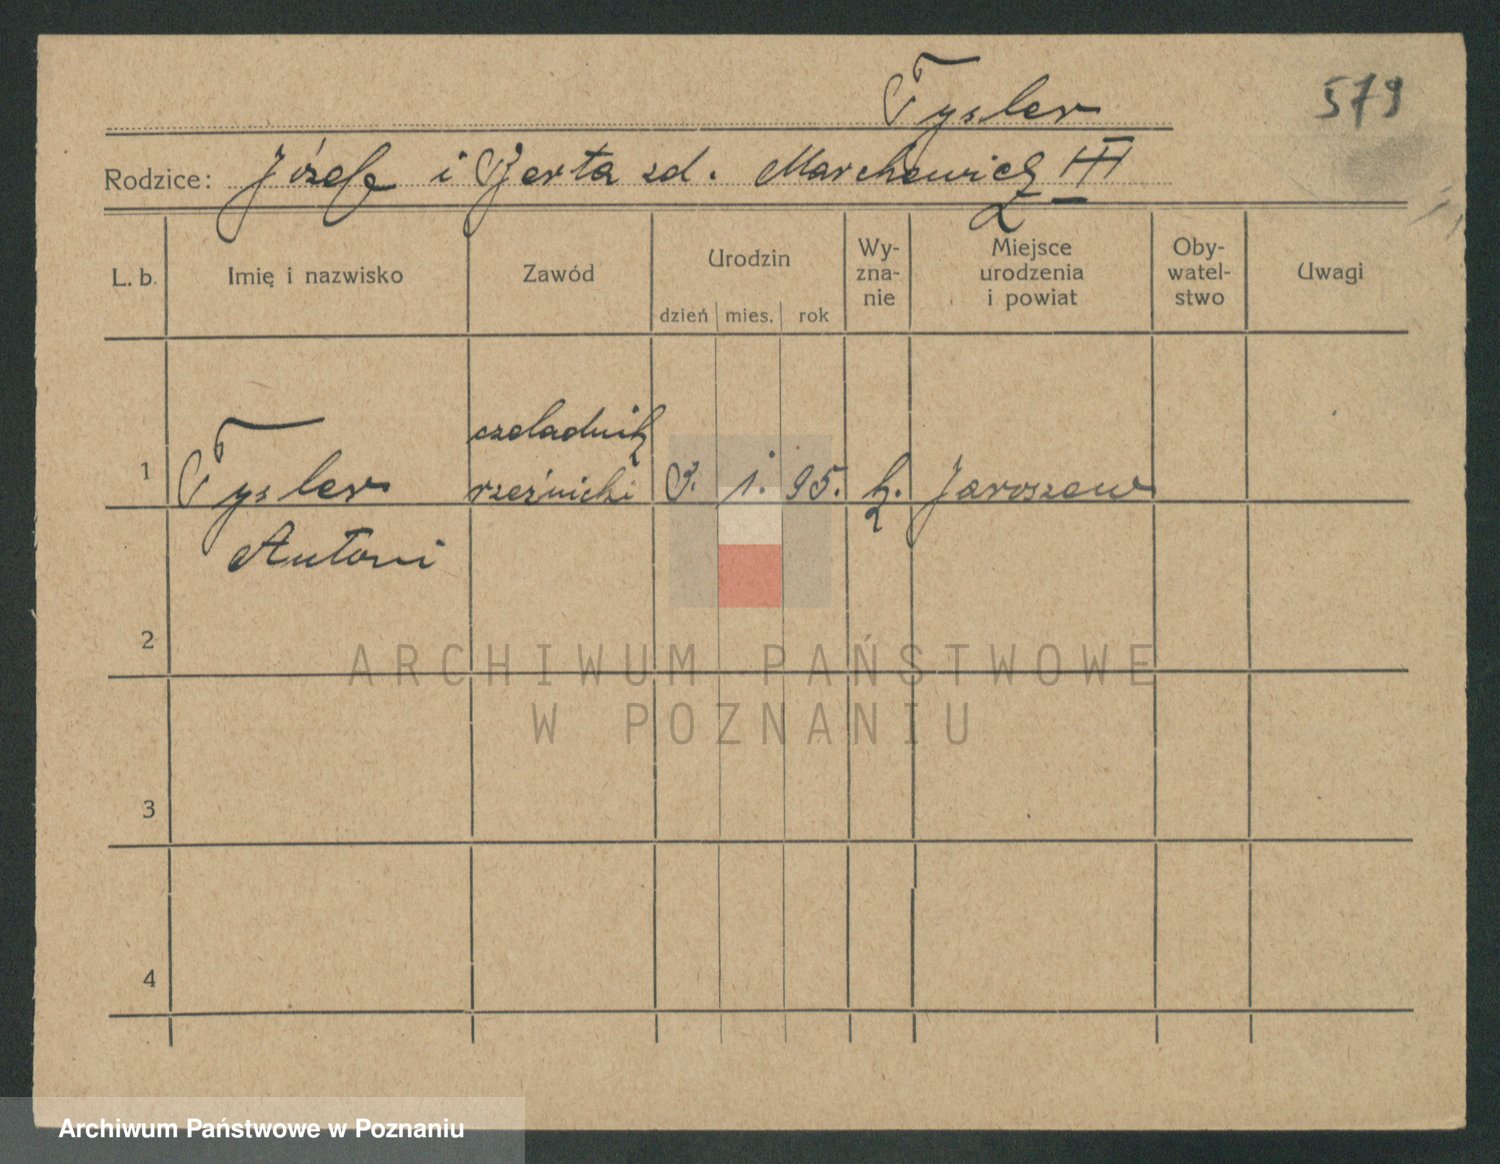 Tysler
579
Rodzice: Józef i Berta zd. Marchewicz III
L. b. Imię i nazwisko Zawód Urodzin dzień mies. rok Wy-zna-nie Miejsce urodzenia i powiat Oby-watel-stwo Uwagi
czeladnik
1 Tysler rzeźnicki 3. 1. 95. k. Jaroszew
Antoni
2
ARCHIWUM PAŃSTWOWE
W POZNANIU
3
4
Archiwum Państwowe w Poznaniu